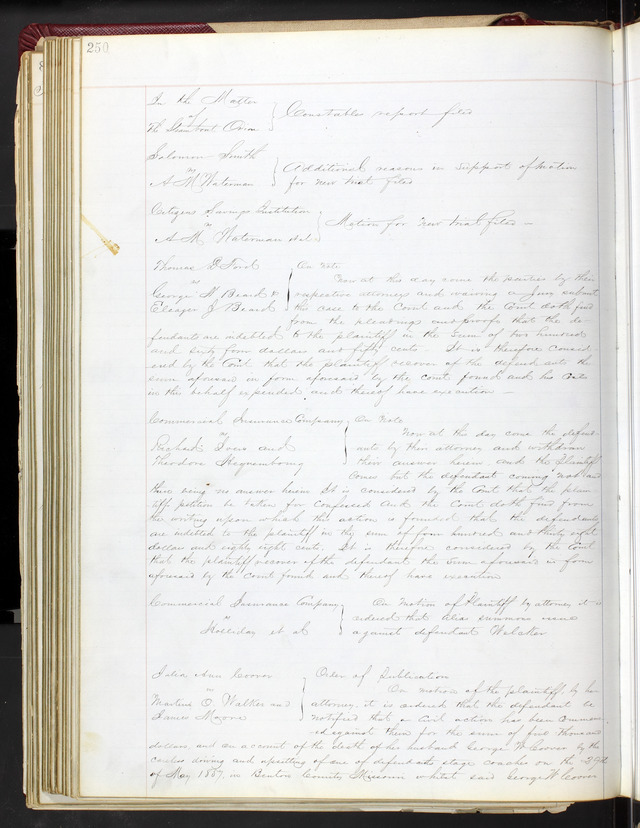 250
In the Matter
of
The Steamboat Orion } Constables report filed
Solomon Smith
vs
A M Waterman } Additional reasons in support of Motion
for new trial filed
Citizens Savings Institution
vs
A M Waterman et al } Motion for new trial filed
Thomas D Ford
vs
George W Beard &
Eleazer J Beard } On Note
Now at this day come the parties by their
respective attorneys and waiving a Jury submit
the case to the Court and the Court doth find
from the pleadings and proofs that the de
fendants are indebted to the plaintiff in the sum of two hundred
and sixty four dollars and fifty cents. It is therefore consid
ered by the Court that the plaintiff recover of the defendants the
sum aforesaid in form aforesaid by the court found and his
in the behalf expended and thereof have execution
Commercial Insurance Company
vs
Richard and
Theodore } On Note
Now at the day come the defend
ants by their attorney and withdraw
their answer herein and the Plaintiff
comes but the defendant coming not and
there being no answer herein It is considered by the Court that the plain
tiffs petition be taken for confessed And the Court doth find from
the writing upon which the action is founded that the defendants
are indebted to the plaintiff in the sum of four hundred and thirty eight
dollars and eighty eight cents. It is therefore considered by the Court
that the plaintiff recover of the defendant the sum aforesaid in form
aforesaid by the Court found and thereof have execution
Commercial Insurance Company
vs
Holliday et al } On motion of Plaintiff by attorney it is
ordered that alias summons issue
against defendant
Julia Ann Coover
vs
Martine O. Walker and
James Moore } Order of Publication
On motion of the plaintiff, by her
attorney, it is ordered that the defendant be
notified that a Civil action has been commenc
ed against them for the sum of five thousand
dollars, and on account of the death of her husband George W Coover by the
careless driving and upsetting of one of defendants stage coaches on the
of May 1857, in Benton County Missouri whilst said George W Coover